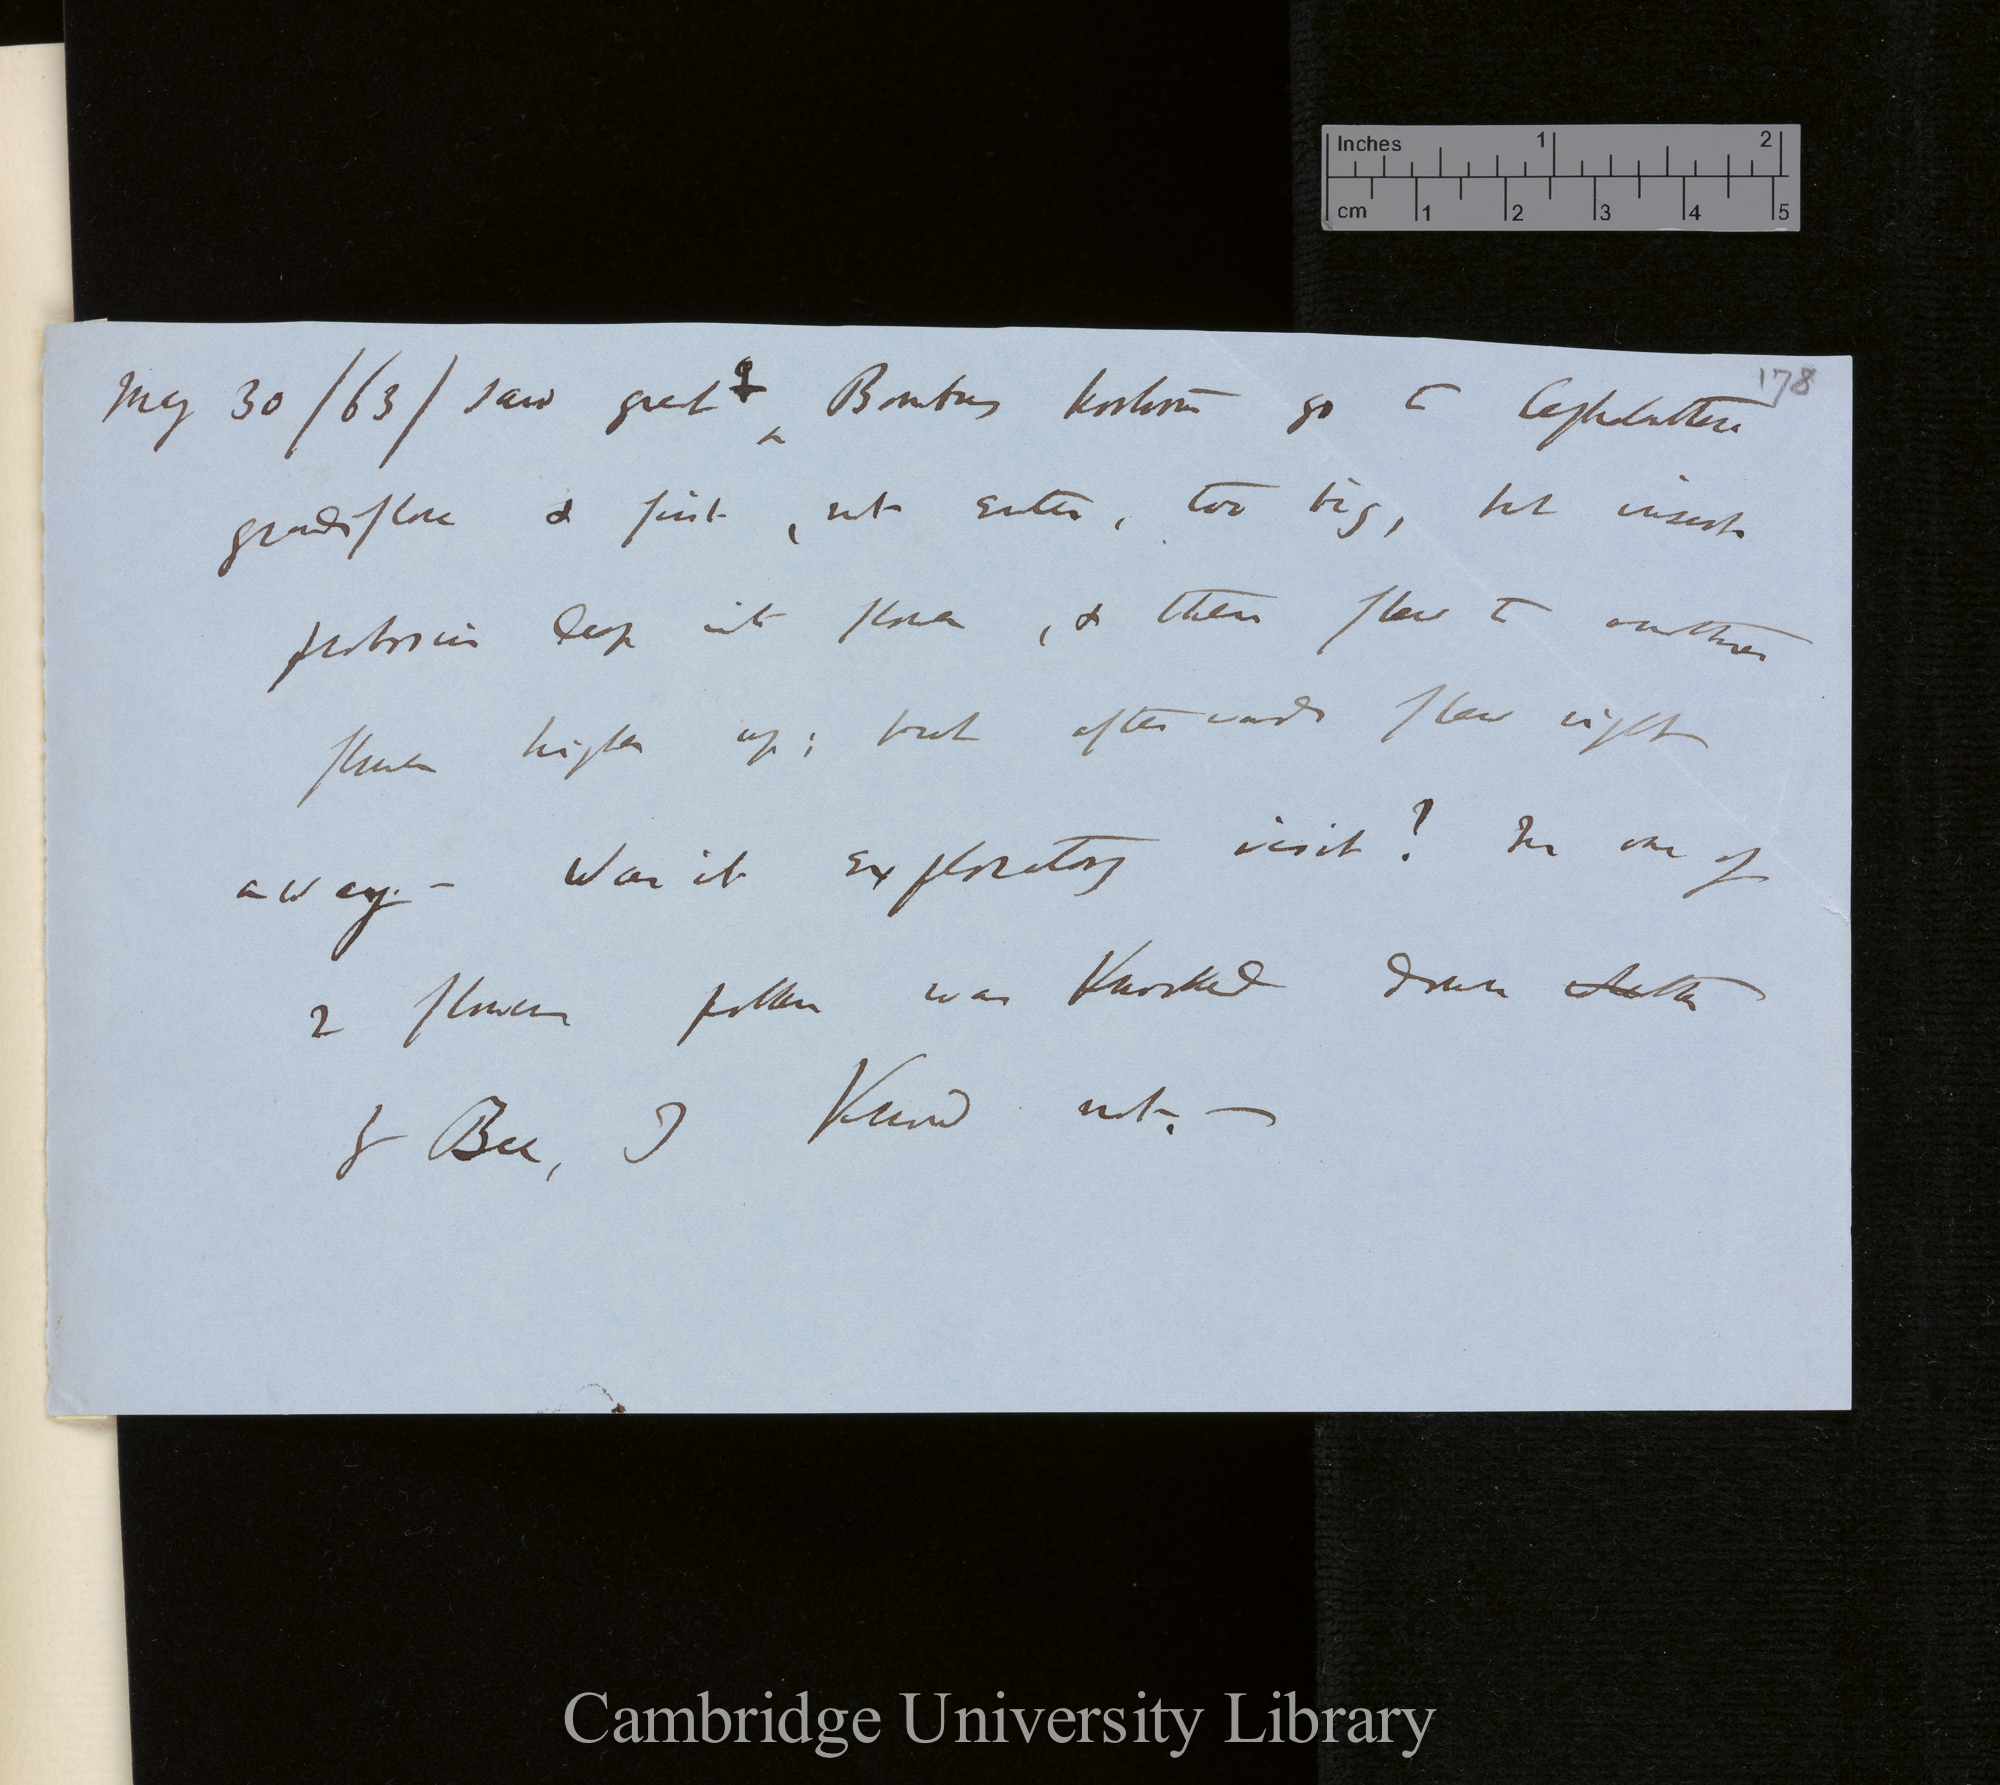 Inches 1 2
cm 1 2 3 4 5
178
May 30 /63/ saw great ♀ Bombus hortorum go to Cephalanthera
grandiflora & first, not enter, too big, but insert
proboscis deep into flower, & then flew to another
flower higher up; but afterwards flew right
away. — Was it exploratory visit? In one of
2 flowers pollen was knocked down
by Bee, I know not. —
Cambridge University Library